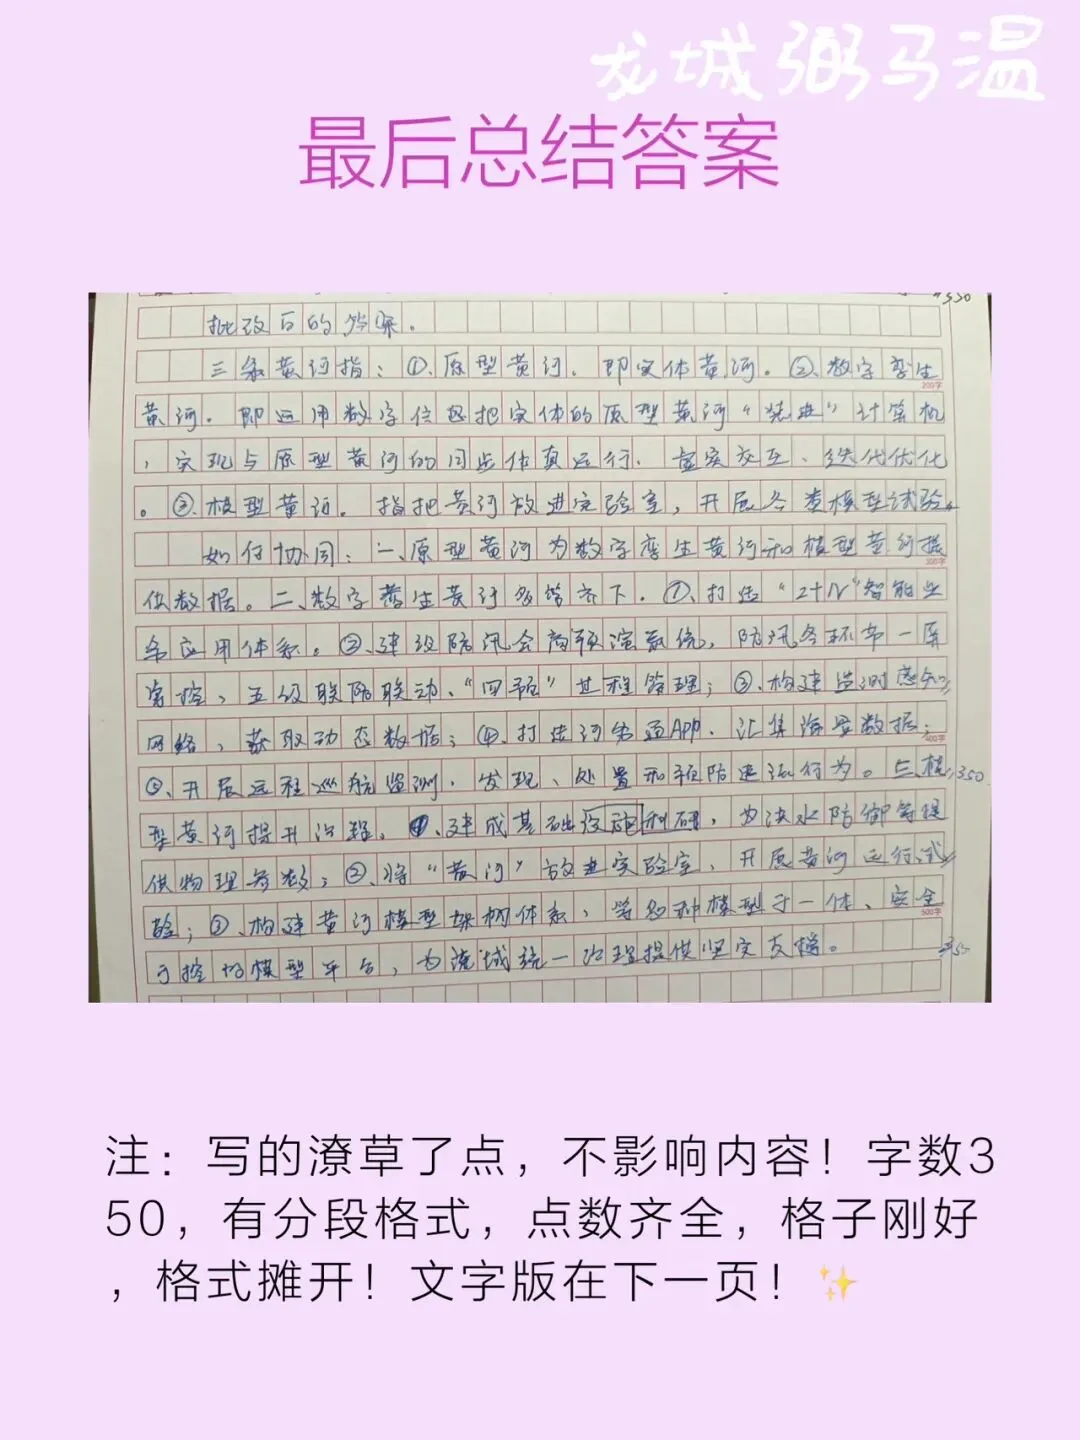 龙城弼马温
最后总结答案
350
批改后的答案。
三条黄河指：①、原型黄河。即实体黄河。②、数字孪生
200字
黄河。即运用数字信息把实体的原型黄河“装进”计算机
，实现与原型黄河的同步仿真运行、虚实交互、迭代优化
。③、模型黄河。指把黄河放进实验室，开展各类模型试验。
如何协同：一、原型黄河为数字孪生黄河和模型黄河提
300字
供数据。二、数字孪生黄河多管齐下。①、打造“2+N”智能业
务应用体系。②、建设防汛会商预演系统，防汛各环节一屏
掌控，五级联防联动、“四预”过程管理；③、构建监测感知
网络，获取动态数据；④、打造河务通APP、汇集海量数据；
400字
⑤、开展远程巡航监测，发现、处置和预防违法行为。三、模
350
型黄河提升治理。①、建成基础设施和研，为洪水防御等提
供物理参数；②、将“黄河”放进实验室，开展黄河运行试
验；③、构建黄河模型架构体系，等多种模型于一体、安全
500字
可控的模型平台，为流域统一治理提供坚实支撑。
350
注：写的潦草了点，不影响内容！字数3
50，有分段格式，点数齐全，格子刚好
，格式摊开！文字版在下一页！✨